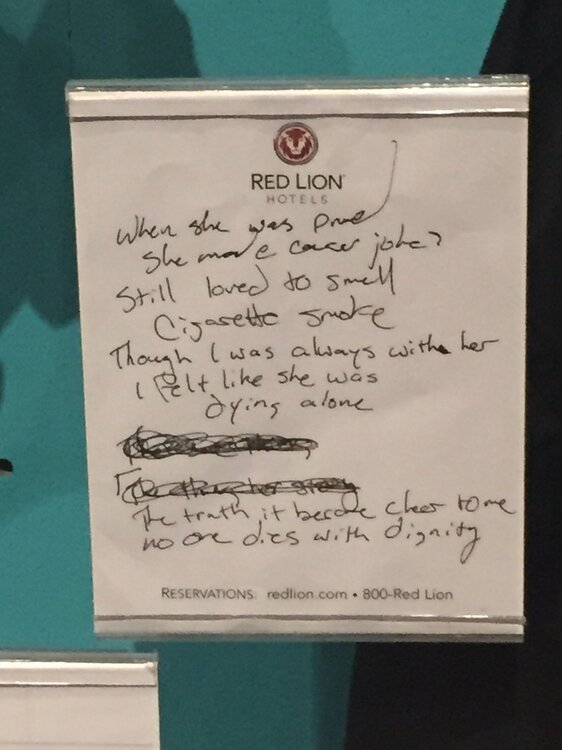 RED LION
HOTELS
When she was
She made cancer joke?
Still loved to smell
Cigarette smoke
Though I was always with her
I felt like she was
dying alone
The truth it became clear to me
no one dies with dignity
RESERVATIONS redlion.com • 800-Red Lion